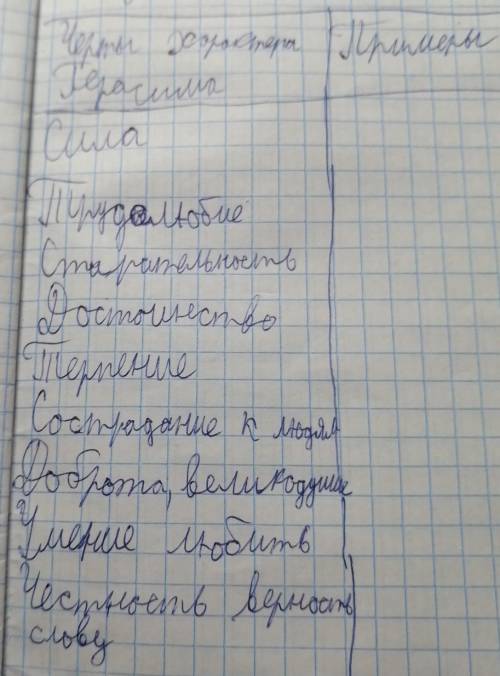 Черты характера Примеры
Герасима
Сила
Трудолюбие
Старательность
Достоинство
Терпение
Сострадание к людям
Доброта, великодушие
Умение любить
Честность верность
слову